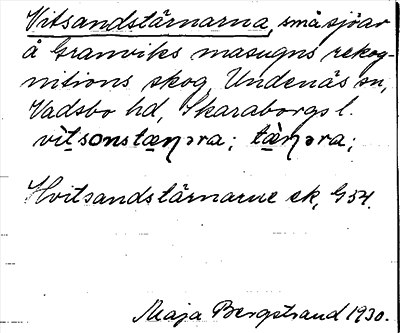 Vitsandstärnarna, små sjöar
å Granviks masugns rekog-
nitions skog, Undenäs sn,
Vadsbo hd, Skaraborgs l.
vìtsonstæŋɔra; tæ̀ŋɔra;
Hvitsandstärnarne ek, G54.
Maja Bergstrand 1930.